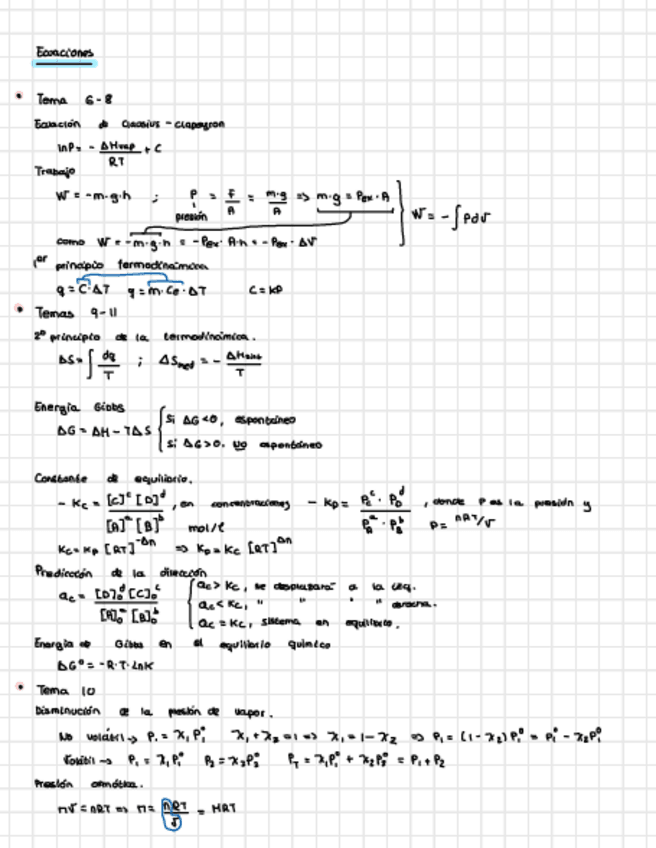 Ecuaciones
• Tema 6-8
Ecuación de Clausius-Clapeyron
lnP = - ΔHvap/RT + C
Trabajo
W = -m·g·h ; P = F/A = m·g/A => m·g = Pex·A
presión
W = -∫PdV
como W = -m·g·h = -Pex·A·h = -Pex·ΔV
1er principio termodinámica
q = C·ΔT q = m·Ce·ΔT
• Temas 9-11
2º principio de la termodinámica.
ΔS = ∫ dq/T ; ΔSmed = - ΔHsist/T
Energía Gibbs
ΔG = ΔH - TΔS
Si ΔG<0, espontáneo
Si ΔG>0, no espontáneo
Constante de equilibrio.
- Kc = [C]^c [D]^d / [A]^a [B]^b, en concentraciones mol/l - Kp = Pc^c · PD^d / PA^a · PB^b, donde P es la presión y P = nRT/V
Kc = Kp [RT]^-Δn => Kp = Kc [RT]^Δn
Predicción de la dirección
Qc = [D]₀^d [C]₀^c / [A]₀^a [B]₀^b
Qc > Kc, se desplazará a la izq.
Qc < Kc, " " " " derecha.
Qc = Kc, sistema en equilibrio.
Energía de Gibbs en el equilibrio químico
ΔG° = -R·T·LnK
• Tema 10
Disminución de la presión de vapor.
No volátil → P₁ = X₁P₁° X₁+X₂=1 => X₁=1-X₂ => P₁ = (1-X₂)P₁° = P₁° - X₂P₁°
Volátil → P₁ = X₁P₁° P₂ = X₂P₂° PT = X₁P₁° + X₂P₂° = P₁+P₂
Presión osmótica.
πV = nRT => π = nRT/V = MRT